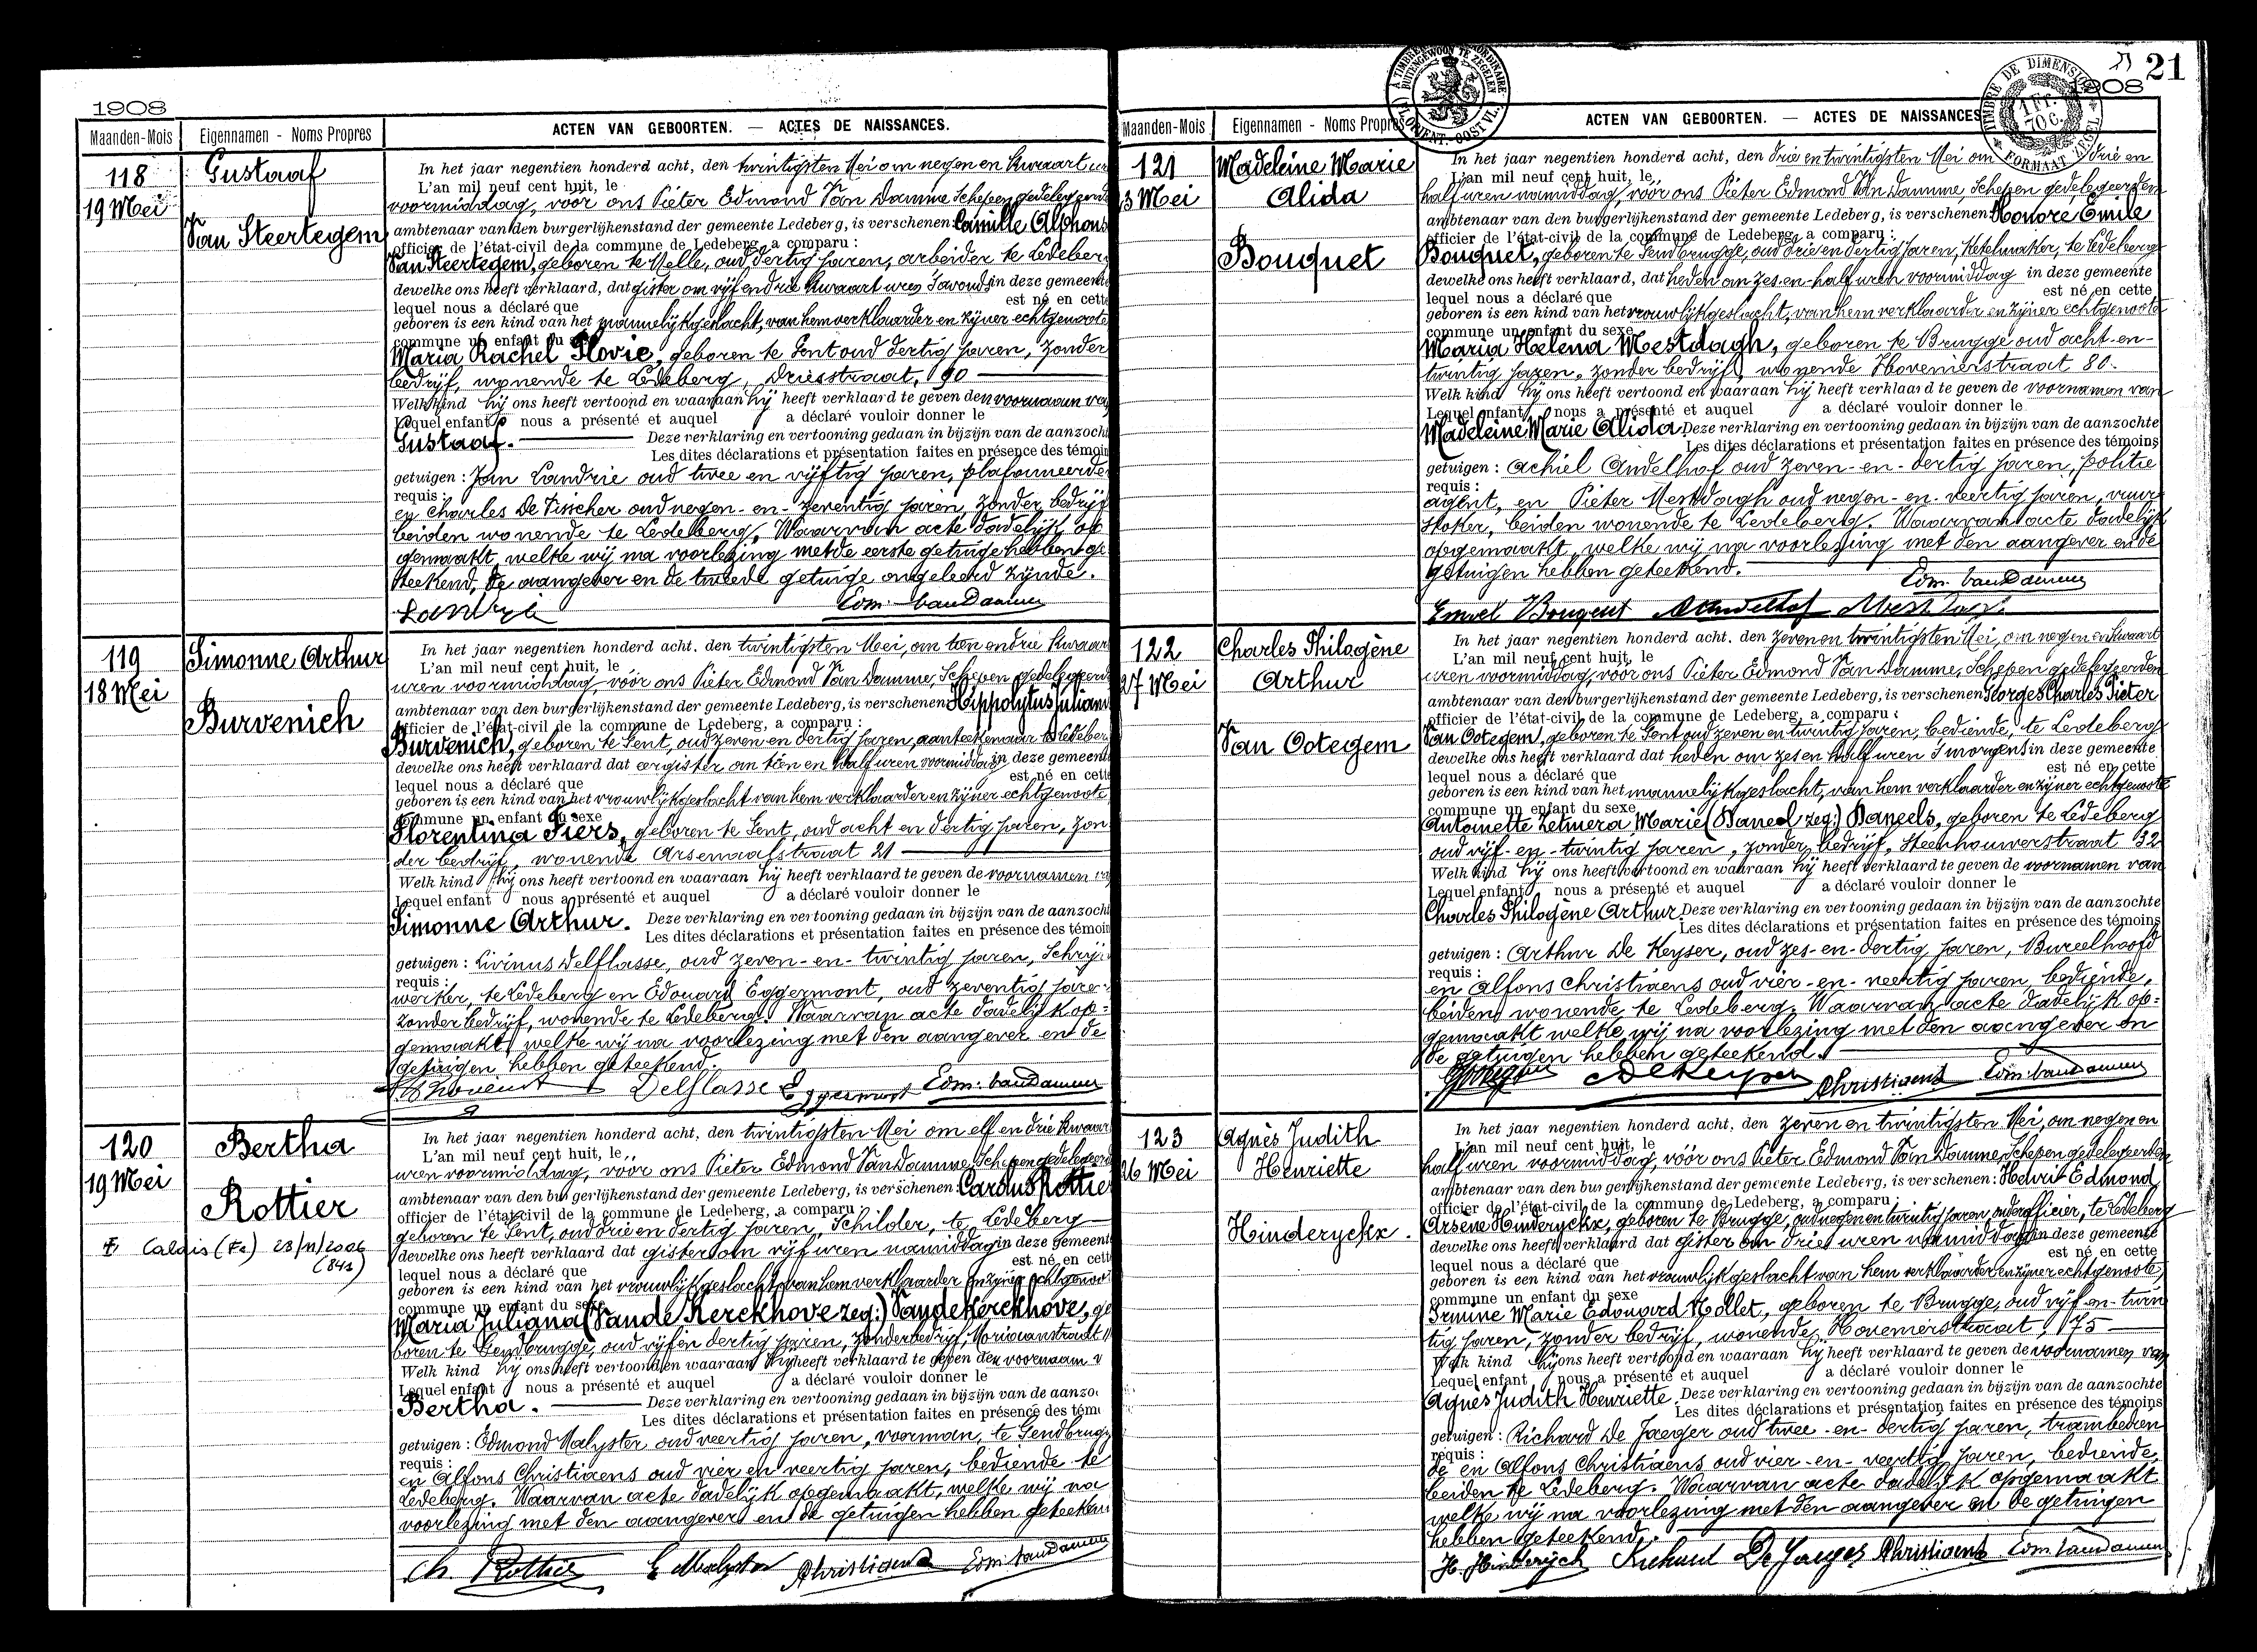 1908
Maanden-Mois Eigennamen - Noms Propres ACTEN VAN GEBOORTEN. — ACTES DE NAISSANCES.
118
19 Mei
Gustaaf
Van Steertegem
In het jaar negentien honderd acht, den twintigsten Mei om negen en kwaart
L'an mil neuf cent huit, le
voormiddag, voor ons Pieter Edmond Van Damme Schepen gedelegeerde
ambtenaar van den burgerlijkenstand der gemeente Ledeberg, is verschenen Camille Alphons
officier de l'état-civil de la commune de Ledeberg, a comparu :
Van Steertegem, geboren te Melle, oud dertig jaren, arbeider te Ledeber
dewelke ons heeft verklaard, dat gister om vijf en drie kwaart uren 's avonds in deze gemeente
lequel nous a déclaré que est né en cette
geboren is een kind van het mannelijk geslacht, van hem verklaarder en zijner echtgenoote
commune un enfant du sexe
Maria Rachel Flovie, geboren te Gent oud dertig jaren, zonder
bedrijf, wonende te Ledeberg, Driesstraat, 90
Welk kind hij ons heeft vertoond en waaraan hij heeft verklaard te geven den voornaam va
Lequel enfant nous a présenté et auquel a déclaré vouloir donner le
Gustaaf. Deze rerklaring en vertooning gedaan in bijzijn van de aanzocht
Les dites déclarations et présentation faites en présence des témoin
getuigen : Jan Landrie oud twee en vijftig jaren, plafonneerder
requis :
en Charles De Visscher oud negen-en-zeventig jaren, zonder bedrijf
beiden wonende te Ledeberg. Waarvan acte dadelijk op
gemaakt welke wij na voorlezing met de eerste getuige hebben ge
teekend, de aangever en de tweede getuige ongeleerd zijnde.
Landrie Edm. vanDamme
119
18 Mei
Simonne Arthur
Burvenich
In het jaar negentien honderd acht. den twintigsten Mei, om tien en drie kwaart
L'an mil neuf cent huit, le
uren voormiddag, vóór ons Pieter Edmond Van Damme, Schepen gedelegeerde
ambtenaar van den burgerlijkenstand der gemeente Ledeberg, is verschenen Hippolytus Julianus
officier de l'état-civil de la commune de Ledeberg, a comparu :
Burvenich, geboren te Gent, oud zeven en dertig jaren, aanteekenaar te Ledeber
dewelke ons heeft verklaard dat eergister om tien en half uren voormiddag in deze gemeente
lequel nous a déclaré que est né en cette
geboren is een kind van het vrouwlijk geslacht van hem verklaarder en zijner echtgenoote
commune un enfant du sexe
Florentina Fiers, geboren te Gent, oud acht en dertig jaren, zon
der bedrijf, wonende Arsenaalstraat 21
Welk kind hij ons heeft vertoond en waaraan hij heeft verklaard te geven de voornamen va
Lequel enfant nous a présenté et auquel a déclaré vouloir donner le
Simonne Arthur. Deze verklaring en vertooning gedaan in bijzijn van de aanzocht
Les dites déclarations et présentation faites en présence des témoin
getuigen : Livinus Delflasse, oud zeven-en-twintig jaren, Schrijn
requis :
werker, te Ledeberg en Edouard Eggermont, oud zeventig jare
zonder bedrijf, wonende te Ledeberg. Waarvan acte dadelijk op=
gemaakt, welke wij na voorlezing met den aangever en de
getuigen hebben geteekend.
Delflasse Eggermont Edm. vanDamme
120
19 Mei
Bertha
Rottier
Calais (Fr) 23/11/2006
(841)
In het jaar negentien honderd acht. den twintigsten Mei om elf en drie kwaart
L'an mil neuf cent huit, le
uren voormiddag, vóór ons Pieter Edmond Van Damme Schepen gedelegeerde
ambtenaar van den burgerlijkenstand der gemeente Ledeberg, is verschenen Carolus Rottier
officier de l'état-civil de la commune de Ledeberg, a comparu
geboren te Gent, oud drie en dertig jaren, Schilder, te Ledeberg
dewelke ons heeft verklaard dat gister om vijf uren namiddag in deze gemeent
lequel nous a déclaré que est né en cett
geboren is een kind van het vrouwlijk geslacht, van hem verklaarder en zijner echtgenoot
commune un enfant du sexe
Maria Juliana (Vande Kerckhove zeg:) Vandekerckhove, ge
boren te Gendbrugge, oud vijf en dertig jaren, zonder bedrijf, Moriaanstraat 11
Welk kind hij ons heeft vertoond en waaraan hij heeft verklaard te geven den voornaam v
Lequel enfant nous a présenté et auquel a déclaré vouloir donner le
Bertha. Deze verklaring en vertooning gedaan in bijzijn van de aanzo
Les dites déclarations et présentation faites en présence des tém
getuigen : Edmond Malyster oud veertig jaren, voorman, te Gendbrugg
requis :
en Alfons Christiaens oud vier en veertig jaren, bediende te
Ledeberg. Waarvan acte dadelijk opgemaakt, welke wij na
voorlezing met den aangever en de getuigen hebben geteekend
Ch. Rottier E Malyster AChristiaens Edm. vanDamme
21
1908
Maanden-Mois Eigennamen - Noms Propres ACTEN VAN GEBOORTEN. — ACTES DE NAISSANCES
TIMBRE DE DIMENSION
1 Fr.
70 c.
FORMAAT ZEGEL
121
3 Mei
Madeleine Marie
Alida
Bouquet
In het jaar negentien honderd acht, den drie en twintigsten Mei om drie en
L'an mil neuf cent huit, le
half uren namiddag, vóór ons Pieter Edmond Van Damme, Schepen gedelegeerden
ambtenaar van den burgerlijkenstand der gemeente Ledeberg, is verschenen Honoré Emile
officier de l'état-civil de la commune de Ledeberg, a comparu :
Bouquet, geboren te Gendbrugge, oud drie en dertig jaren, Ketelmaker, te Ledeberg
dewelke ons heeft verklaard, dat heden om zes en-half uren voormiddag in deze gemeente
lequel nous a déclaré que est né en cette
geboren is een kind van het vrouwlijk geslacht, van hem verklaarder en zijner echtgenoote
commune un enfant du sexe
Maria Helena Mestdagh, geboren te Brugge oud acht-en-
twintig jaren, zonder bedrijf, wonende Hovenierstraat 80.
Welk kind hij ons heeft vertoond en waaraan hij heeft verklaard te geven de voornamen van
Lequel enfant nous a présenté et auquel a déclaré vouloir donner le
Madeleine Marie Alida. Deze rerklaring en vertooning gedaan in bijzijn van de aanzochte
Les dites déclarations et présentation faites en présence des témoins
getuigen : Achiel Andelhof oud zeven-en-dertig jaren, politie
requis :
agent, en Pieter Mestdagh oud negen-en-veertig jaren, vuur
stoker, beiden wonende te Ledeberg. Waarvan acte dadelijk
opgemaakt, welke wij na voorlezing met den aangever en de
getuigen hebben geteekend.
Edm. vanDamme
Emiel Bouquet Andelhof Mestdagh
122
27 Mei
Charles Philogène
Arthur
Van Ootegem
In het jaar negentien honderd acht. den zeven en twintigsten Mei, om negen en kwaart
L'an mil neuf cent huit, le
uren voormiddag, vóór ons Pieter Edmond Van Damme, Schepen gedelegeerden
ambtenaar van den burgerlijkenstand der gemeente Ledeberg, is verschenen Georges Charles Pieter
officier de l'état-civil de la commune de Ledeberg, a comparu :
Van Ootegem, geboren te Gent oud zeven en twintig jaren, bediende, te Ledeberg
dewelke ons heeft verklaard dat heden om zes en half uren 's morgens in deze gemeente
lequel nous a déclaré que est né en cette
geboren is een kind van het mannelijk geslacht, van hem verklaarder en zijner echtgenoote
commune un enfant du sexe
Antoinette Zelmera Marie (Baneel zeg:) Baneels, geboren te Ledeberg
oud vijf-en-twintig jaren, zonder bedrijf, Steenhouwerstraat 32
Welk kind hij ons heeft vertoond en waaraan hij heeft verklaard te geven de voornamen van
Lequel enfant nous a présenté et auquel a déclaré vouloir donner le
Charles Philogène Arthur. Deze verklaring en vertooning gedaan in bijzijn van de aanzochte
Les dites déclarations et présentation faites en présence des témoins
getuigen : Arthur De Keyser, oud zes-en-dertig jaren, Bureelhoofd
requis :
en Alfons Christiaens oud vier-en-veertig jaren, bediende,
beiden wonende te Ledeberg. Waarvan acte dadelijk op=
gemaakt welke wij na voorlezing met den aangever en
de getuigen hebben geteekend.
DeKeyser AChristiaens Edm. vanDamme
123
26 Mei
Agnès Judith
Henriette
Hinderyckx.
In het jaar negentien honderd acht. den zeven en twintigsten Mei, om negen en
L'an mil neuf cent huit, le
half uren voormiddag, vóór ons Pieter Edmond Van Damme, Schepen gedelegeerden
ambtenaar van den burgerlijkenstand der gemeente Ledeberg, is verschenen: Henri Edmond
officier de l'état-civil de la commune de Ledeberg, a comparu
Arsène Hinderyckx, geboren te Brugge, oud negen en twintig jaren, onderofficier, te Ledeberg
dewelke ons heeft verklaard dat gister om drie uren namiddag in deze gemeente
lequel nous a déclaré que est né en cette
geboren is een kind van het vrouwlijk geslacht van hem verklaarder en zijner echtgenoote
commune un enfant du sexe
Irmine Marie Edouard Hollet, geboren te Brugge, oud vijf en-twin
tig jaren, zonder bedrijf, wonende Hovenierstraat 175
Welk kind hij ons heeft vertoond en waaraan hij heeft verklaard te geven de voornamen van
Lequel enfant nous a présenté et auquel a déclaré vouloir donner le
Agnès Judith Henriette. Deze verklaring en vertooning gedaan in bijzijn van de aanzochte
Les dites déclarations et présentation faites en présence des témoins
getuigen : Richard De Jaeger oud twee-en-dertig jaren, trambedien
requis :
de en Alfons Christiaens oud vier-en-veertig jaren, bediende,
beiden te Ledeberg. Waarvan acte dadelijk opgemaakt
welke wij na voorlezing met den aangever en de getuigen
hebben geteekend.
H. Hinderyckx Richard De Jaeger AChristiaens Edm. vanDamme